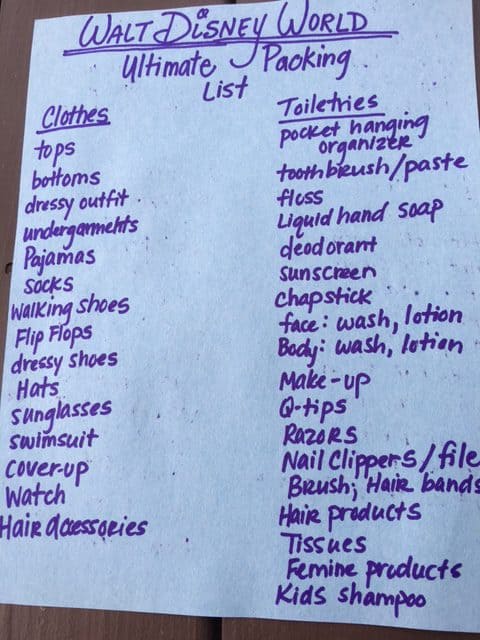 WALT DISNEY WORLD
Ultimate Packing
List
Clothes
tops
bottoms
dressy outfit
undergarmehts
Pajamas
socks
walking shoes
Flip Flops
dressy shoes
Hats
sunglasses
swimsuit
cover-up
Watch
Hair accessories
Toiletries
pocket hanging
organizer
toothbrush/paste
floss
Liquid hand soap
deodorant
sunscreen
chapstick
face: wash, lotion
Body: wash, lotion
Make-up
Q-tips
Razors
Nail Clippers/file
Brush; Hair bands
Hair products
Tissues
Femine products
Kids shampoo